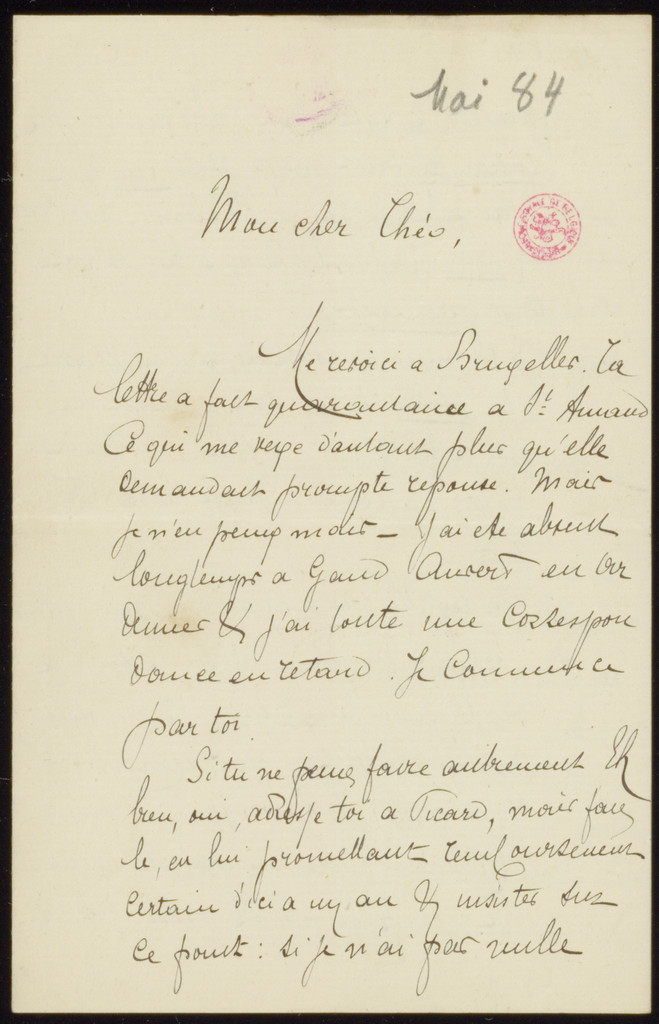 Mai 84
Mon cher Théo,
Me revoici a Bruxelles. Ta
lettre a fait quarantaine a St. Amand
Ce qui me vexe d'autant plus qu'elle
demandait prompte reponse. Mais
je n'en peux mais – J'ai ete absent
longtemps a Gand Anvers en Ar
denne & j'ai toute une Correspon
dance en retard. Je Commence
par toi.
Si tu ne peux faire autrement Eh
bien, oui, adresse toi a Picard, mais fais
le, en lui promettant remboursement
certain d'ici a un an & insister sur
ce point : si je n'ai pas mille